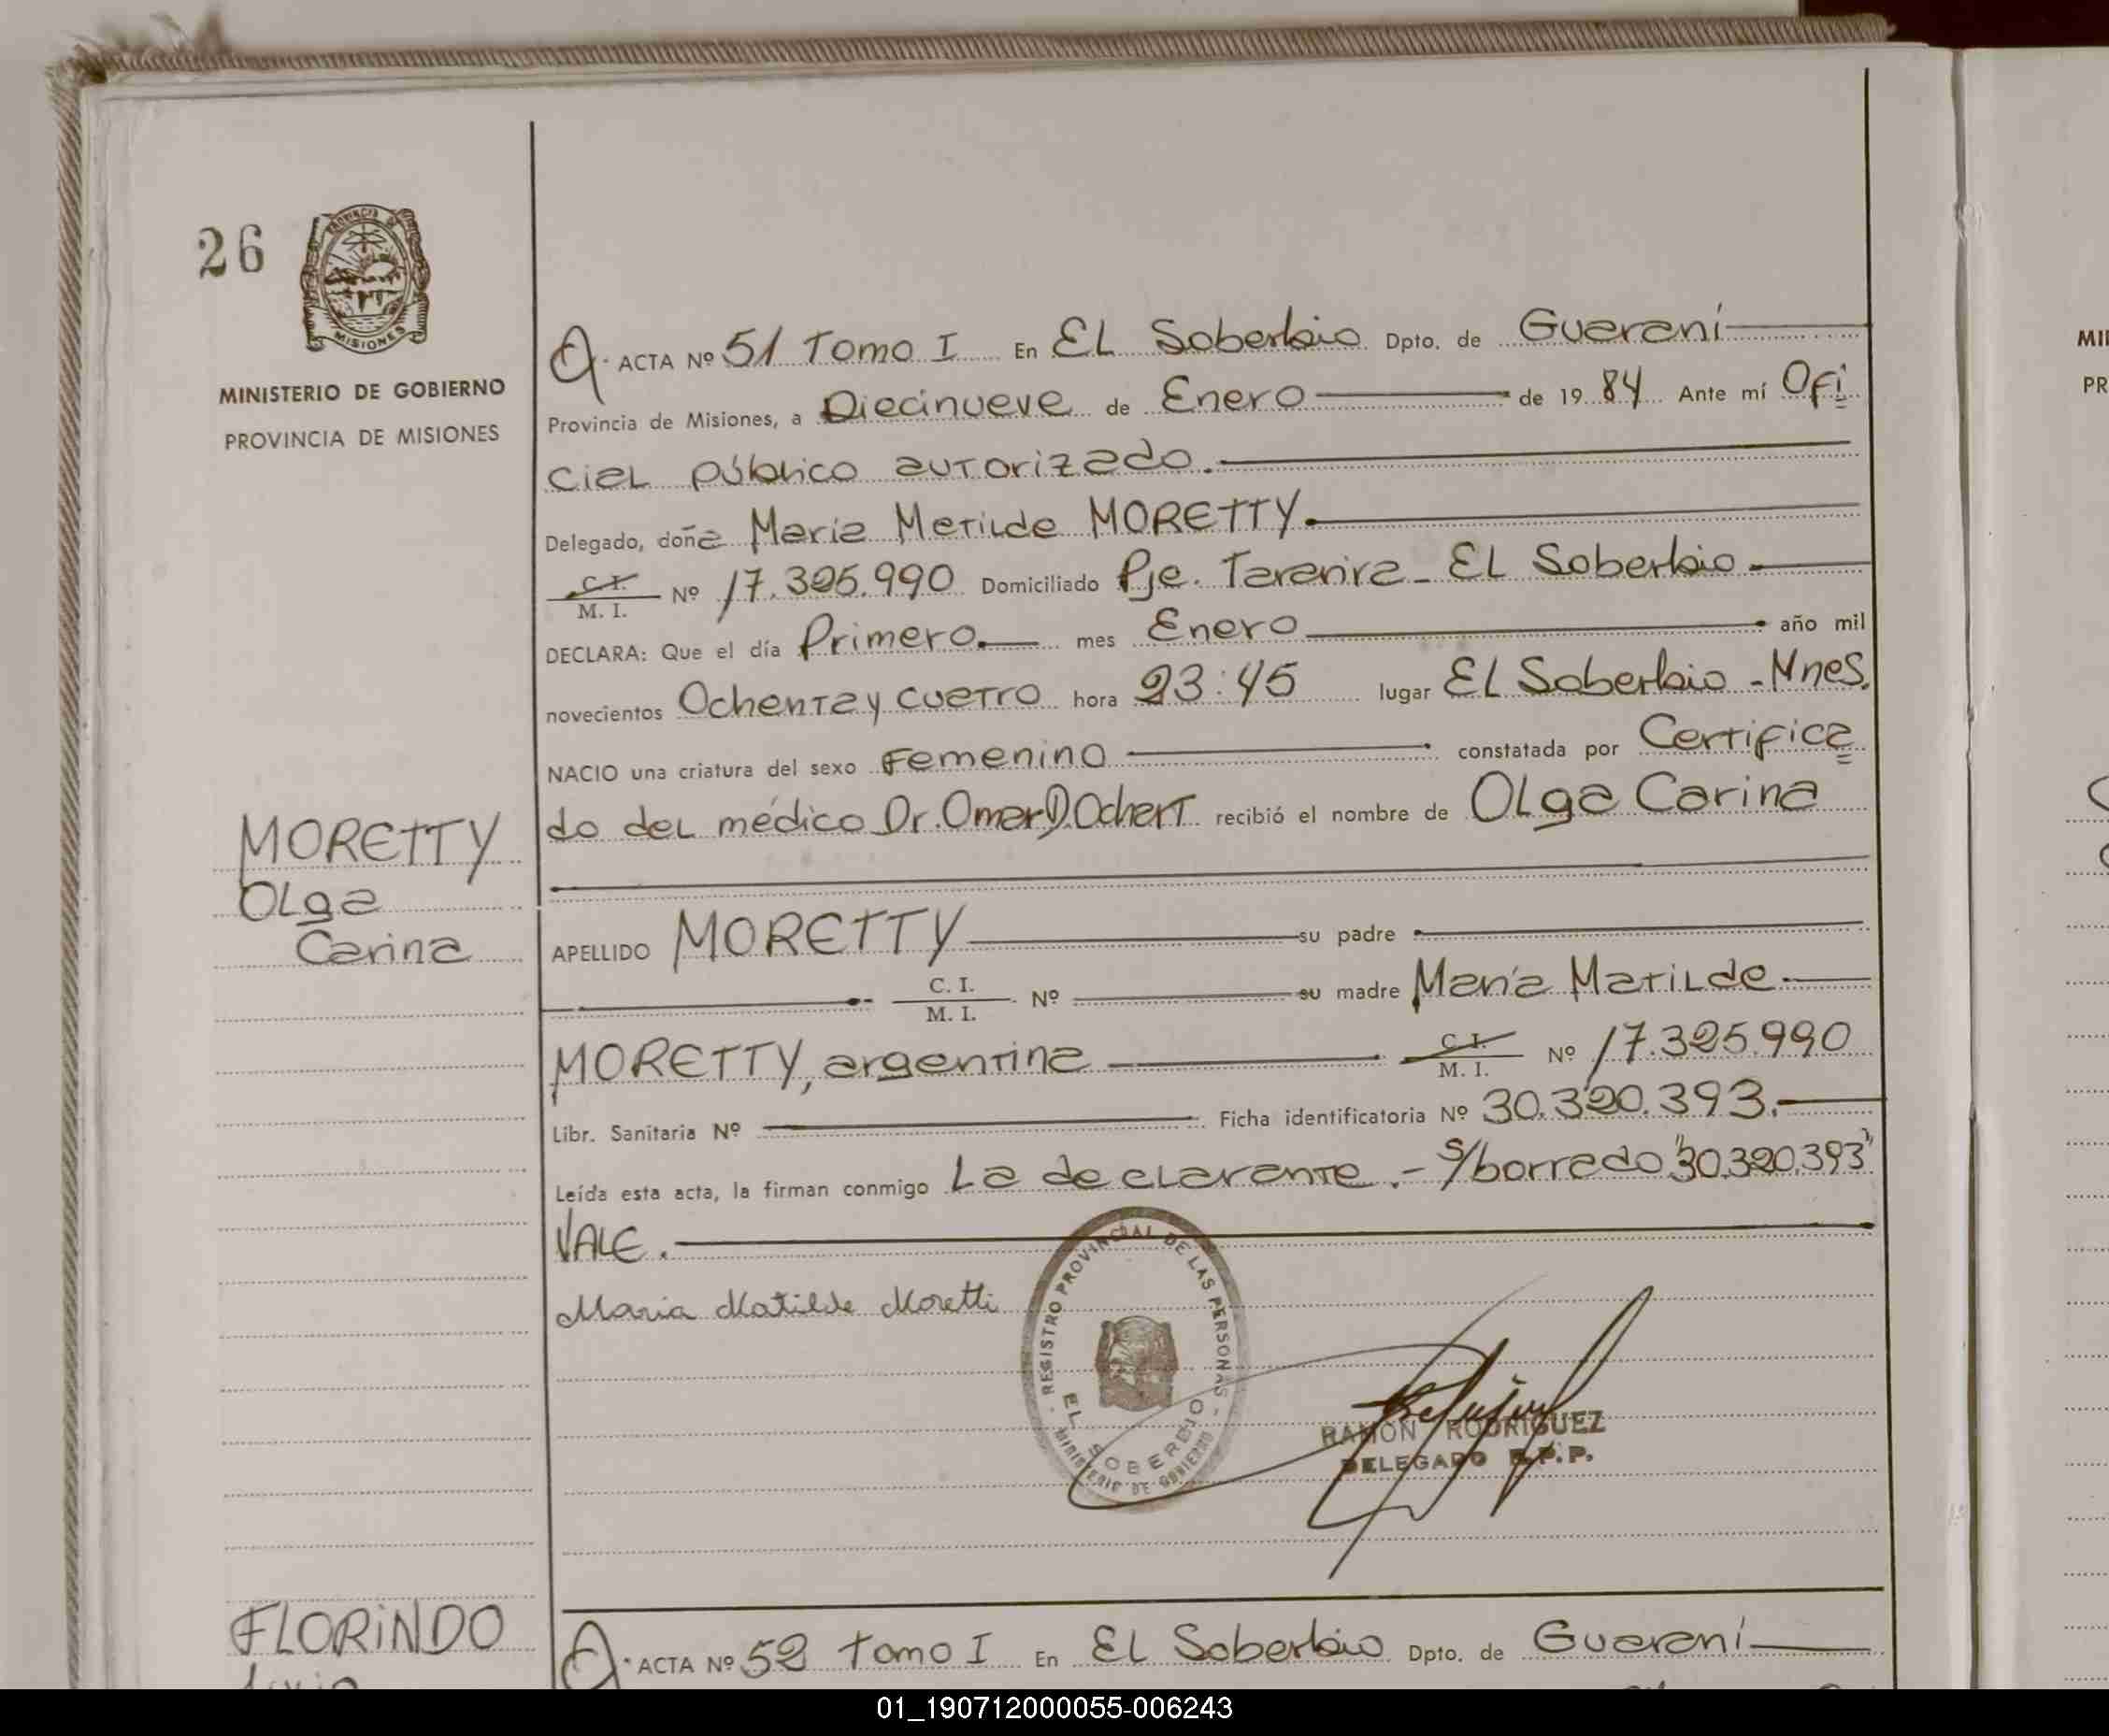 26
PROVINCIA DE
MISIONES
MINISTERIO DE GOBIERNO
PROVINCIA DE MISIONES
ACTA Nº 51 Tomo I En EL Soberbio Dpto. de Guaraní
Provincia de Misiones, a Diecinueve de Enero de 1984 Ante mí Ofi
cial público autorizado.
Delegado, doña María Matilde MORETTY.
C. I. / M. I. Nº 17.325.990 Domiciliado Pje. Tararira - EL Soberbio
DECLARA: Que el día Primero. mes Enero año mil
novecientos Ochenta y cuatro hora 23:45 lugar El Soberbio - Mnes.
NACIO una criatura del sexo Femenino constatada por Certifica
do del médico Dr. Omar D. Ochart recibió el nombre de OLga Carina
MORETTY
OLga
Carina
APELLIDO MORETTY su padre
C. I. / M. I. Nº su madre María Matilde
MORETTY, argentina C. I. / M. I. Nº 17.325.990
Libr. Sanitaria Nº Ficha identificatoria Nº 30.320.393.
Leída esta acta, la firman conmigo La declarante. - S/borrado "30.320.393"
VALE.
Maria Matilde Moretti
- REGISTRO PROVINCIAL DE LAS PERSONAS -
EL SOBERBIO
MINISTERIO DE GOBIERNO
RAMON RODRIGUEZ
DELEGADO R.P.P.
FLORINDO
ACTA Nº 52 Tomo I En EL Soberbio Dpto. de Guaraní
MI
PR
01_190712000055-006243